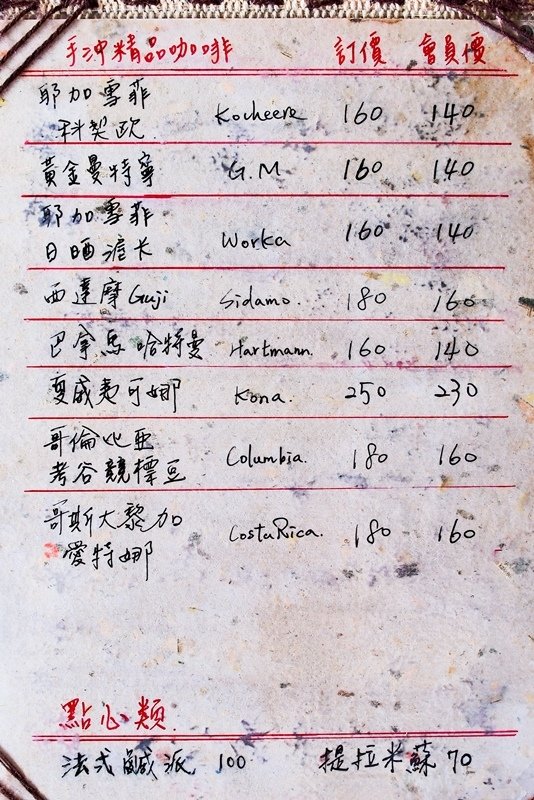 手沖精品咖啡 訂價 會員價
耶加雪菲
科契欧 Kocheere 160 140
黃金曼特寧 G.M 160 140
耶加雪菲
日晒滬卡 Worka 160 140
西達摩Guji Sidamo. 180 160
巴拿馬哈特曼 Hartmann. 160 140
夏威夷可娜 Kona. 250 230
哥倫比亞
考谷競標豆 Columbia. 180 160
哥斯大黎加
愛特娜 CostaRica. 180 160
點心類
法式鹹派 100 提拉米蘇 70